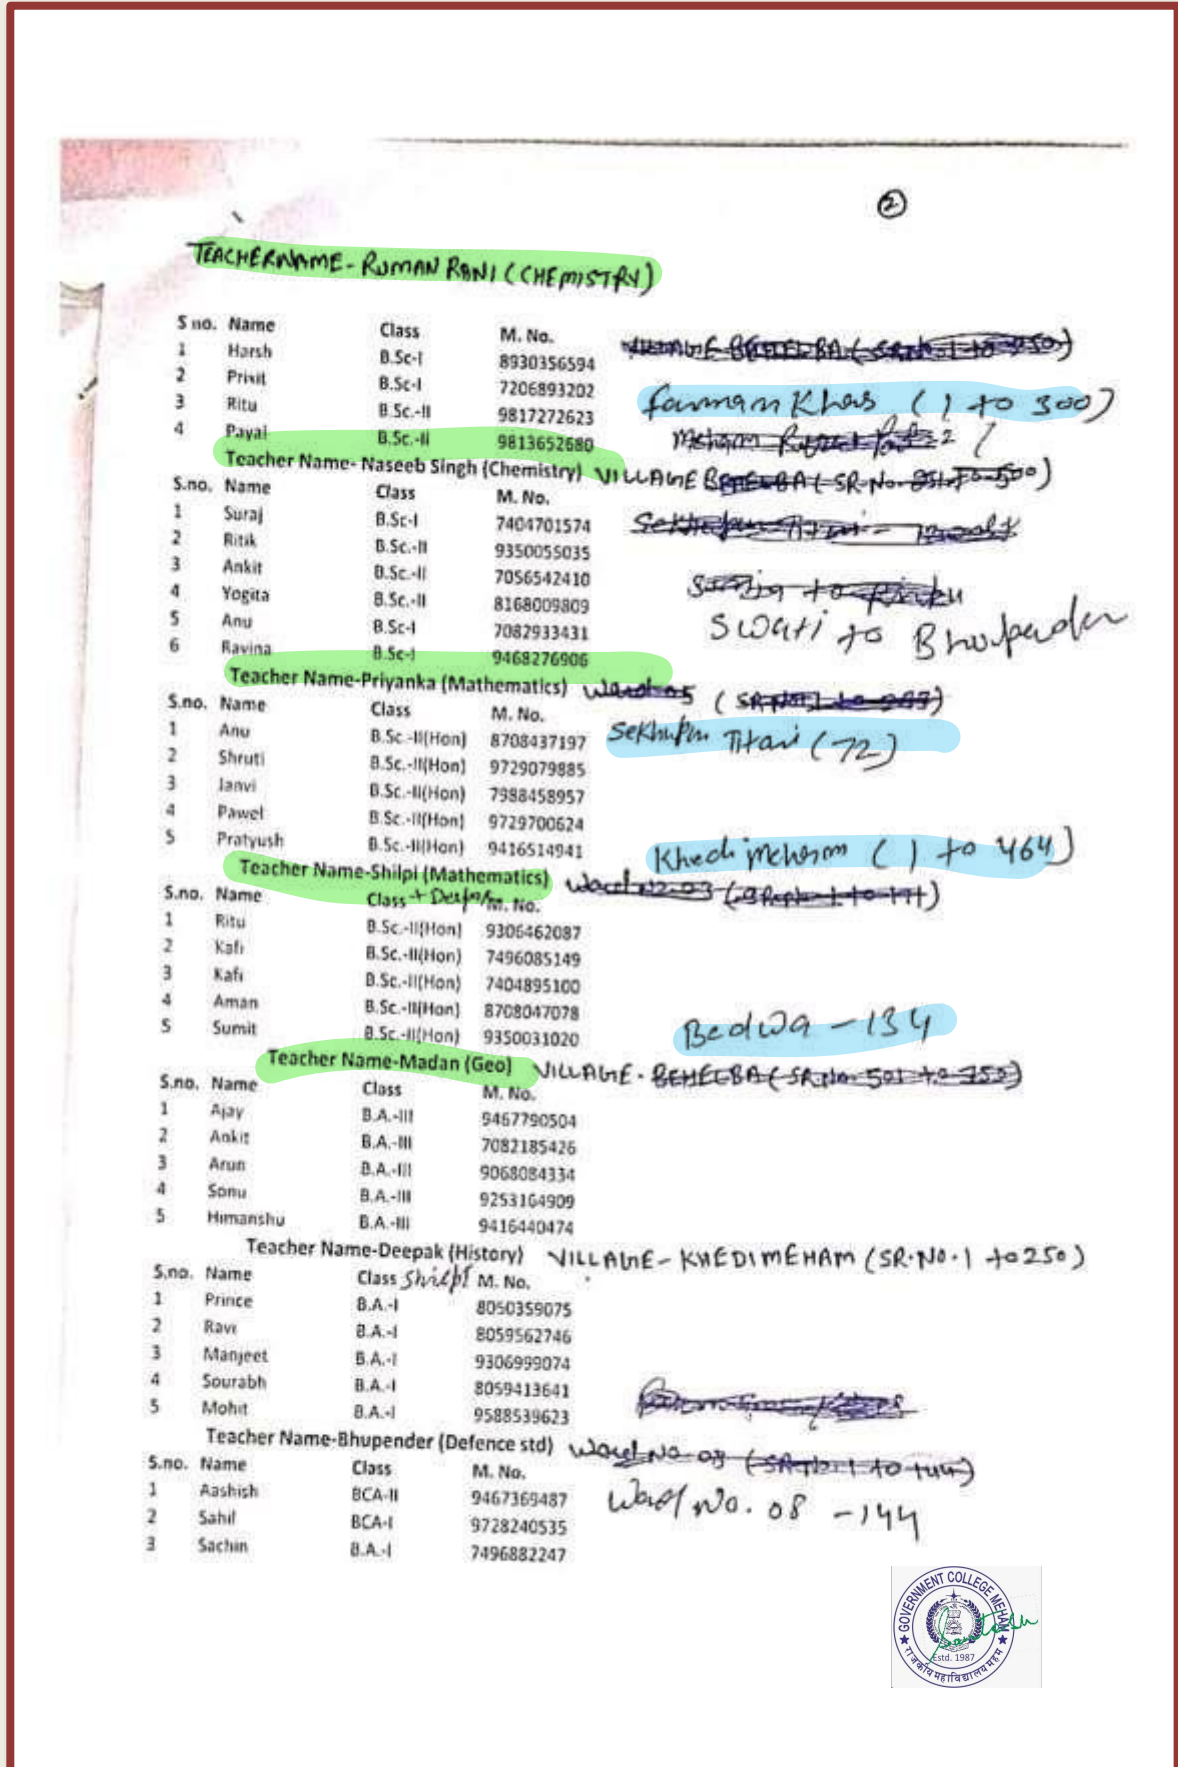 2
TEACHERNAME- RUMAN RANI (CHEMISTRY)
S no. Name Class M. No.
1 Harsh B.Sc-I 8930356594
VILLAGE BEHELBA (SR.No.1 to 250)
2 Prixit B.Sc-I 7206893202
3 Ritu B.Sc.-II 9817272623
Khas (1 to 300)
4 Payal B.Sc.-II 9813652680
Meham
Teacher Name- Naseeb Singh (Chemistry) VILLAGE BEHELBA (SR-No. 251 To 500)
S.no. Name Class M. No.
1 Suraj B.Sc-I 7404701574
2 Ritik B.Sc.-II 9350055035
3 Ankit B.Sc.-II 7056542410
4 Yogita B.Sc.-II 8168009809
5 Anu B.Sc-I 7082933431
Swati to Bhupender
6 Ravina B.Sc-I 9468276906
Teacher Name-Priyanka (Mathematics) Ward 05
S.no. Name Class M. No.
1 Anu B.Sc.-II(Hon) 8708437197
Titari (72)
2 Shruti B.Sc.-II(Hon) 9729079885
3 Janvi B.Sc.-II(Hon) 7988458957
4 Pawel B.Sc.-II(Hon) 9729700624
5 Pratyush B.Sc.-II(Hon) 9416514941
Khedi meham (1 to 464)
Teacher Name-Shilpi (Mathematics)
S.no. Name Class + Deepak M. No.
1 Ritu B.Sc.-II(Hon) 9306462087
2 Kafi B.Sc.-II(Hon) 7496085149
3 Kafi B.Sc.-II(Hon) 7404895100
4 Aman B.Sc.-II(Hon) 8708047078
5 Sumit B.Sc.-II(Hon) 9350031020
Bedwa - 134
Teacher Name-Madan (Geo) VILLAGE - BEHELBA (SR.No. 501 to 750)
S.no. Name Class M. No.
1 Ajay B.A.-III 9467790504
2 Ankit B.A.-III 7082185426
3 Arun B.A.-III 9068084334
4 Sonu B.A.-III 9253164909
5 Himanshu B.A.-III 9416440474
Teacher Name-Deepak (History) VILLAGE- KHEDIMEHAM (SR.No.1 to 250)
S.no. Name Class Shilpi M. No.
1 Prince B.A.-I 8050359075
2 Ravi B.A.-I 8059562746
3 Manjeet B.A.-I 9306999074
4 Sourabh B.A.-I 8059413641
5 Mohit B.A.-I 9588539623
Teacher Name-Bhupender (Defence std) Ward No 08 (SR.No.1 to 144)
S.no. Name Class M. No.
1 Aashish BCA-II 9467369487
Ward No. 08 - 144
2 Sahil BCA-I 9728240535
3 Sachin B.A.-I 7496882247
GOVERNMENT COLLEGE MEHAM
Estd. 1987
राजकीय महाविद्यालय महम